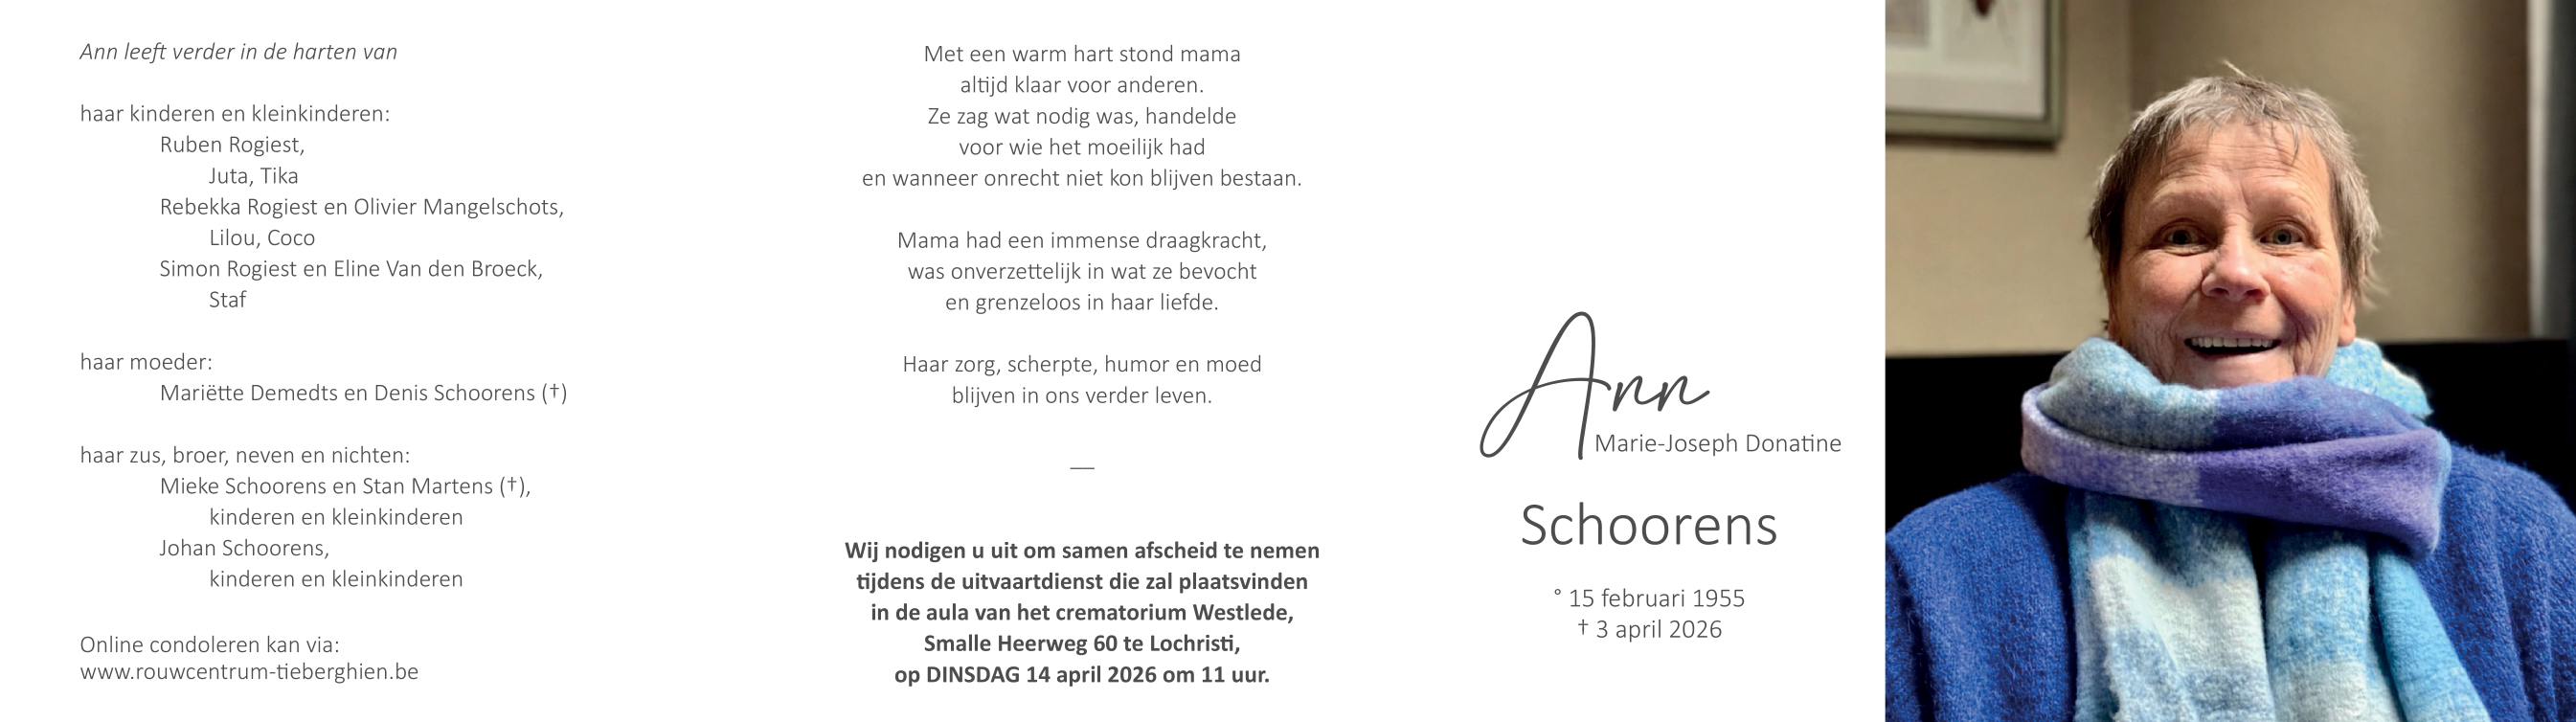 Ann leeft verder in de harten van
haar kinderen en kleinkinderen:
Ruben Rogiest,
Juta, Tika
Rebekka Rogiest en Olivier Mangelschots,
Lilou, Coco
Simon Rogiest en Eline Van den Broeck,
Staf
haar moeder:
Mariëtte Demedts en Denis Schoorens (†)
haar zus, broer, neven en nichten:
Mieke Schoorens en Stan Martens (†),
kinderen en kleinkinderen
Johan Schoorens,
kinderen en kleinkinderen
Online condoleren kan via:
www.rouwcentrum-tieberghien.be
Met een warm hart stond mama
altijd klaar voor anderen.
Ze zag wat nodig was, handelde
voor wie het moeilijk had
en wanneer onrecht niet kon blijven bestaan.
Mama had een immense draagkracht,
was onverzettelijk in wat ze bevocht
en grenzeloos in haar liefde.
Haar zorg, scherpte, humor en moed
blijven in ons verder leven.
—
Wij nodigen u uit om samen afscheid te nemen
tijdens de uitvaartdienst die zal plaatsvinden
in de aula van het crematorium Westlede,
Smalle Heerweg 60 te Lochristi,
op DINSDAG 14 april 2026 om 11 uur.
Ann
Marie-Joseph Donatine
Schoorens
° 15 februari 1955
† 3 april 2026